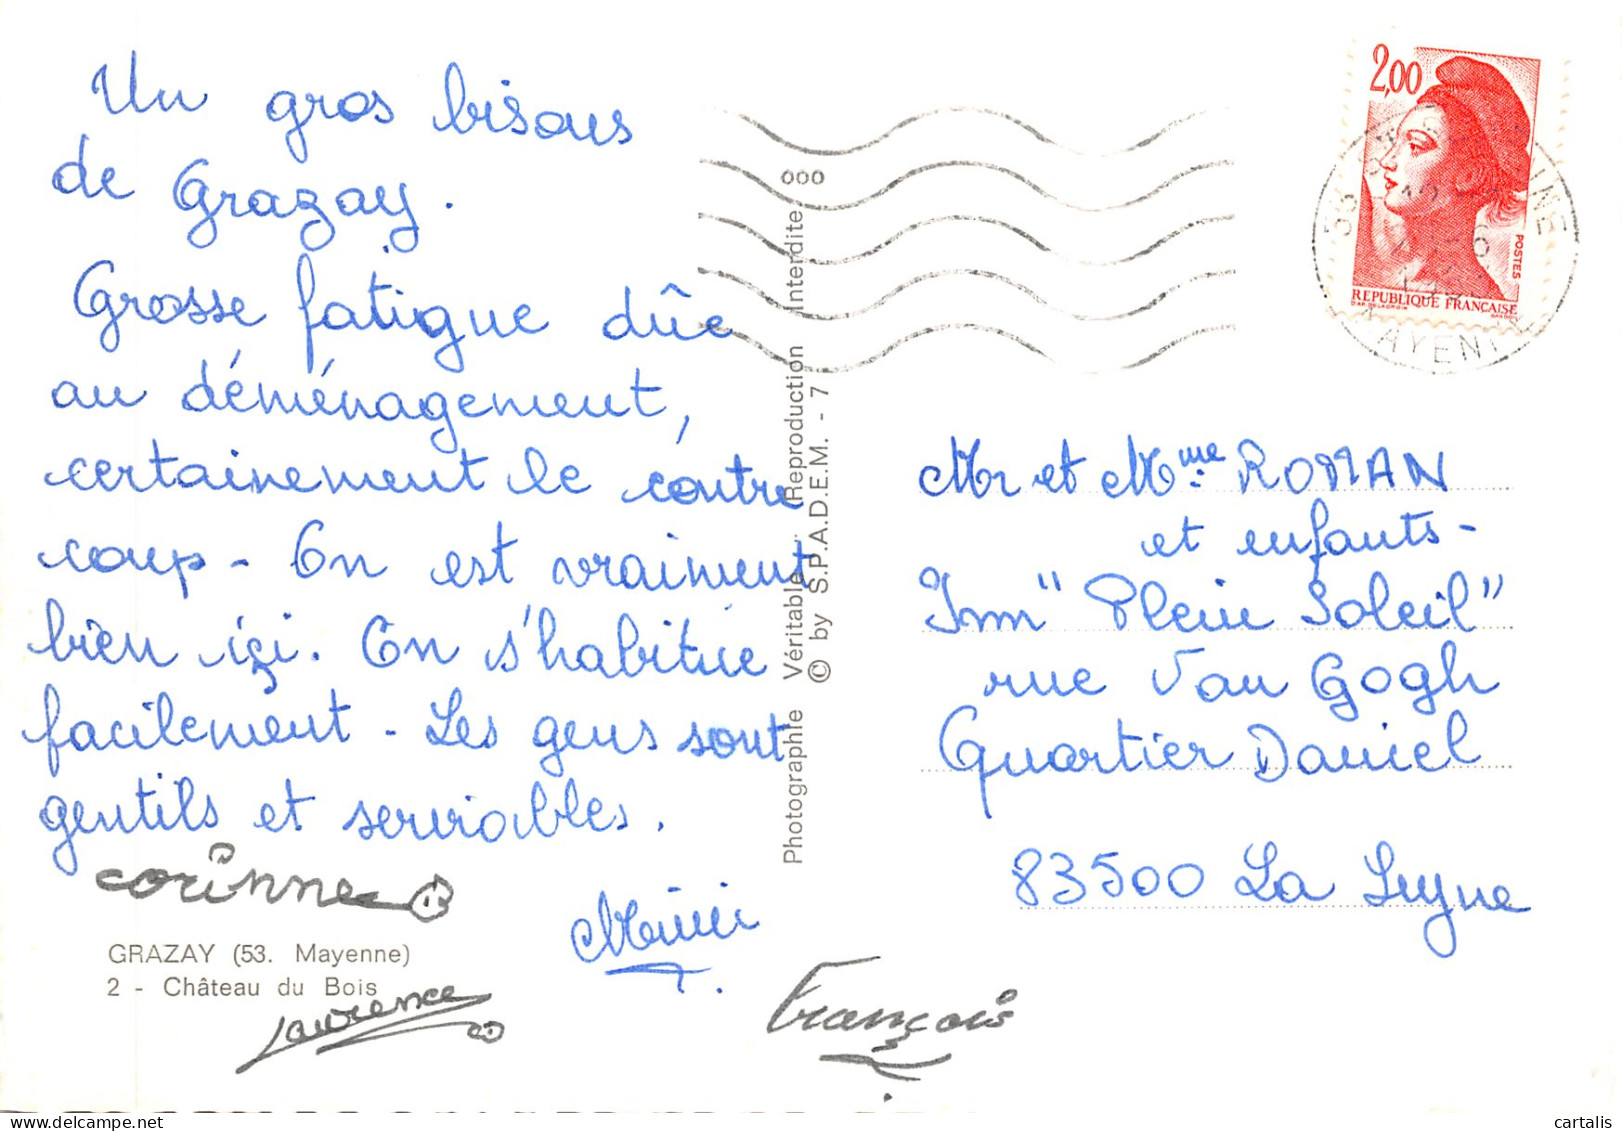 Un gros bisous
de Grazay.
Grosse fatigue dûe
au déménagement,
certainement le contre
coup - On est vraiment
bien içi. On s'habitue
facilement - Les gens sont
gentils et serviables.
corinne
Mimi
Laurence
François
GRAZAY (53. Mayenne)
2 - Château du Bois
Photographie Véritable. Reproduction Interdite
© by S.P.A.D.E.M. - 7
000
2,00
POSTES
REPUBLIQUE FRANÇAISE
53
MAYENNE
Mr et Mme ROMAN
et enfants -
Imm "Plein Soleil"
rue Van Gogh
Quartier Daniel
83500 La Seyne
cartalis